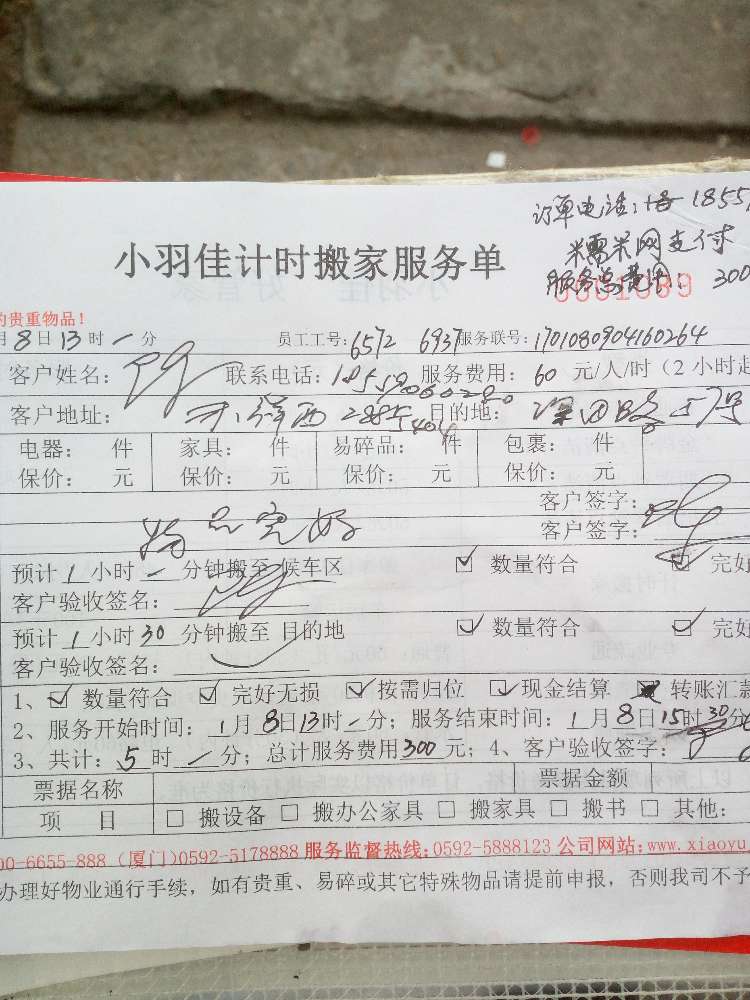 订单电话: 1855
糯米网支付
小羽佳计时搬家服务单
服务总费用: 300
的贵重物品!
月8日13时一分 员工工号:6572 6937 服务联号:1701080904160264
客户姓名: 联系电话:18559060280 服务费用:60元/人/时(2小时起
客户地址: 目的地:
电器: 件 家具: 件 易碎品: 件 包裹: 件
保价: 元 保价: 元 保价: 元 保价: 元
客户签字:
物品完好 客户签字:
预计1小时一分钟搬至 候车区 ☑ 数量符合 ☑ 完好
客户验收签名:
预计1小时30分钟搬至 目的地 ☑ 数量符合 ☑ 完好
客户验收签名:
1、☑ 数量符合 ☑ 完好无损 ☑ 按需归位 ☑ 现金结算 转账汇款
2、服务开始时间:1月8日13时一分; 服务结束时间:1月8日15时30分
3、共计:5时一分; 总计服务费用300元; 4、客户验收签字:
票据名称 票据金额
项 目 □ 搬设备 □ 搬办公家具 □ 搬家具 □ 搬书 □ 其他:
00-6655-888 (厦门)0592-5178888 服务监督热线:0592-5888123 公司网站:www.xiaoyu
办理好物业通行手续, 如有贵重、易碎或其它特殊物品请提前申报, 否则我司不予